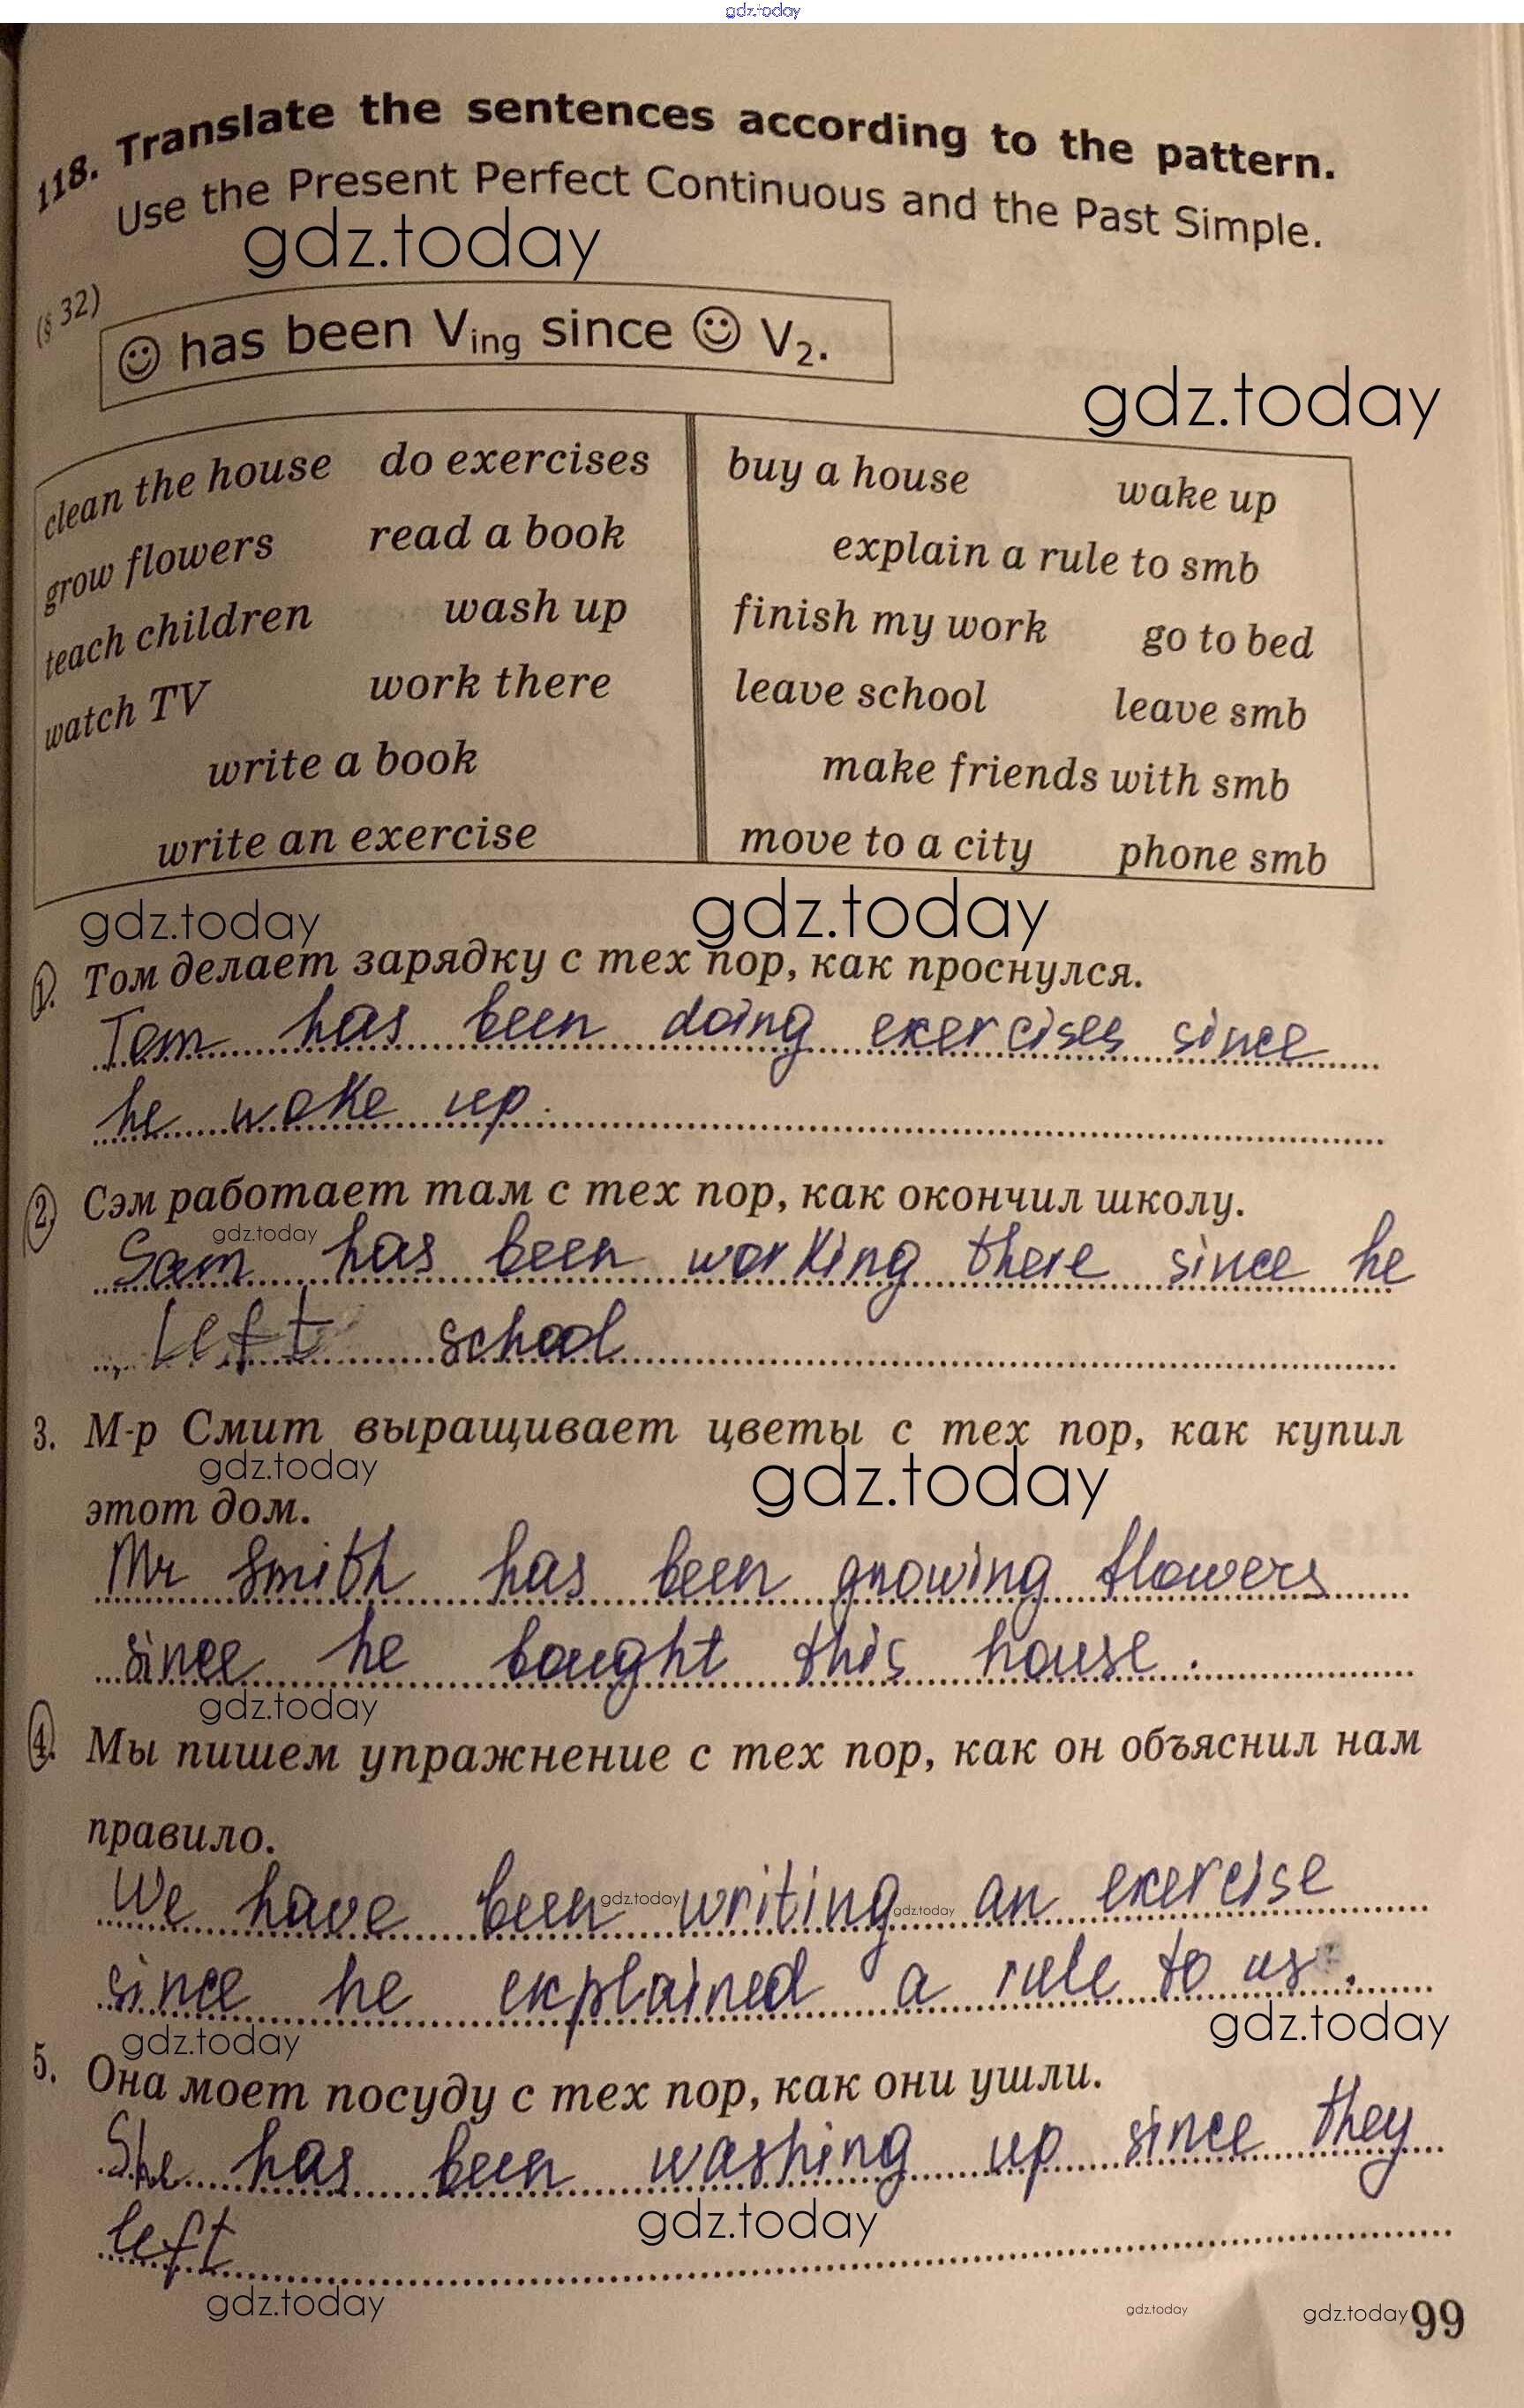 gdz.today
118. Translate the sentences according to the pattern.
Use the Present Perfect Continuous and the Past Simple.
gdz.today
(§ 32)
☺ has been Ving since ☺ V2.
gdz.today
clean the house do exercises
grow flowers read a book
teach children wash up
watch TV work there
write a book
write an exercise
buy a house wake up
explain a rule to smb
finish my work go to bed
leave school leave smb
make friends with smb
move to a city phone smb
gdz.today gdz.today
1. Том делает зарядку с тех пор, как проснулся.
Tom has been doing exercises since
he woke up.
2. Сэм работает там с тех пор, как окончил школу.
gdz.today
Sam has been working there since he
left school
3. М-р Смит выращивает цветы с тех пор, как купил
gdz.today gdz.today
этот дом.
Mr Smith has been growing flowers
since he bought this house.
gdz.today
4. Мы пишем упражнение с тех пор, как он объяснил нам
правило.
We have been writing an exercise
gdz.today gdz.today
since he explained a rule to us.
gdz.today gdz.today
5. Она моет посуду с тех пор, как они ушли.
She has been washing up since they
left
gdz.today
gdz.today gdz.today gdz.today
99